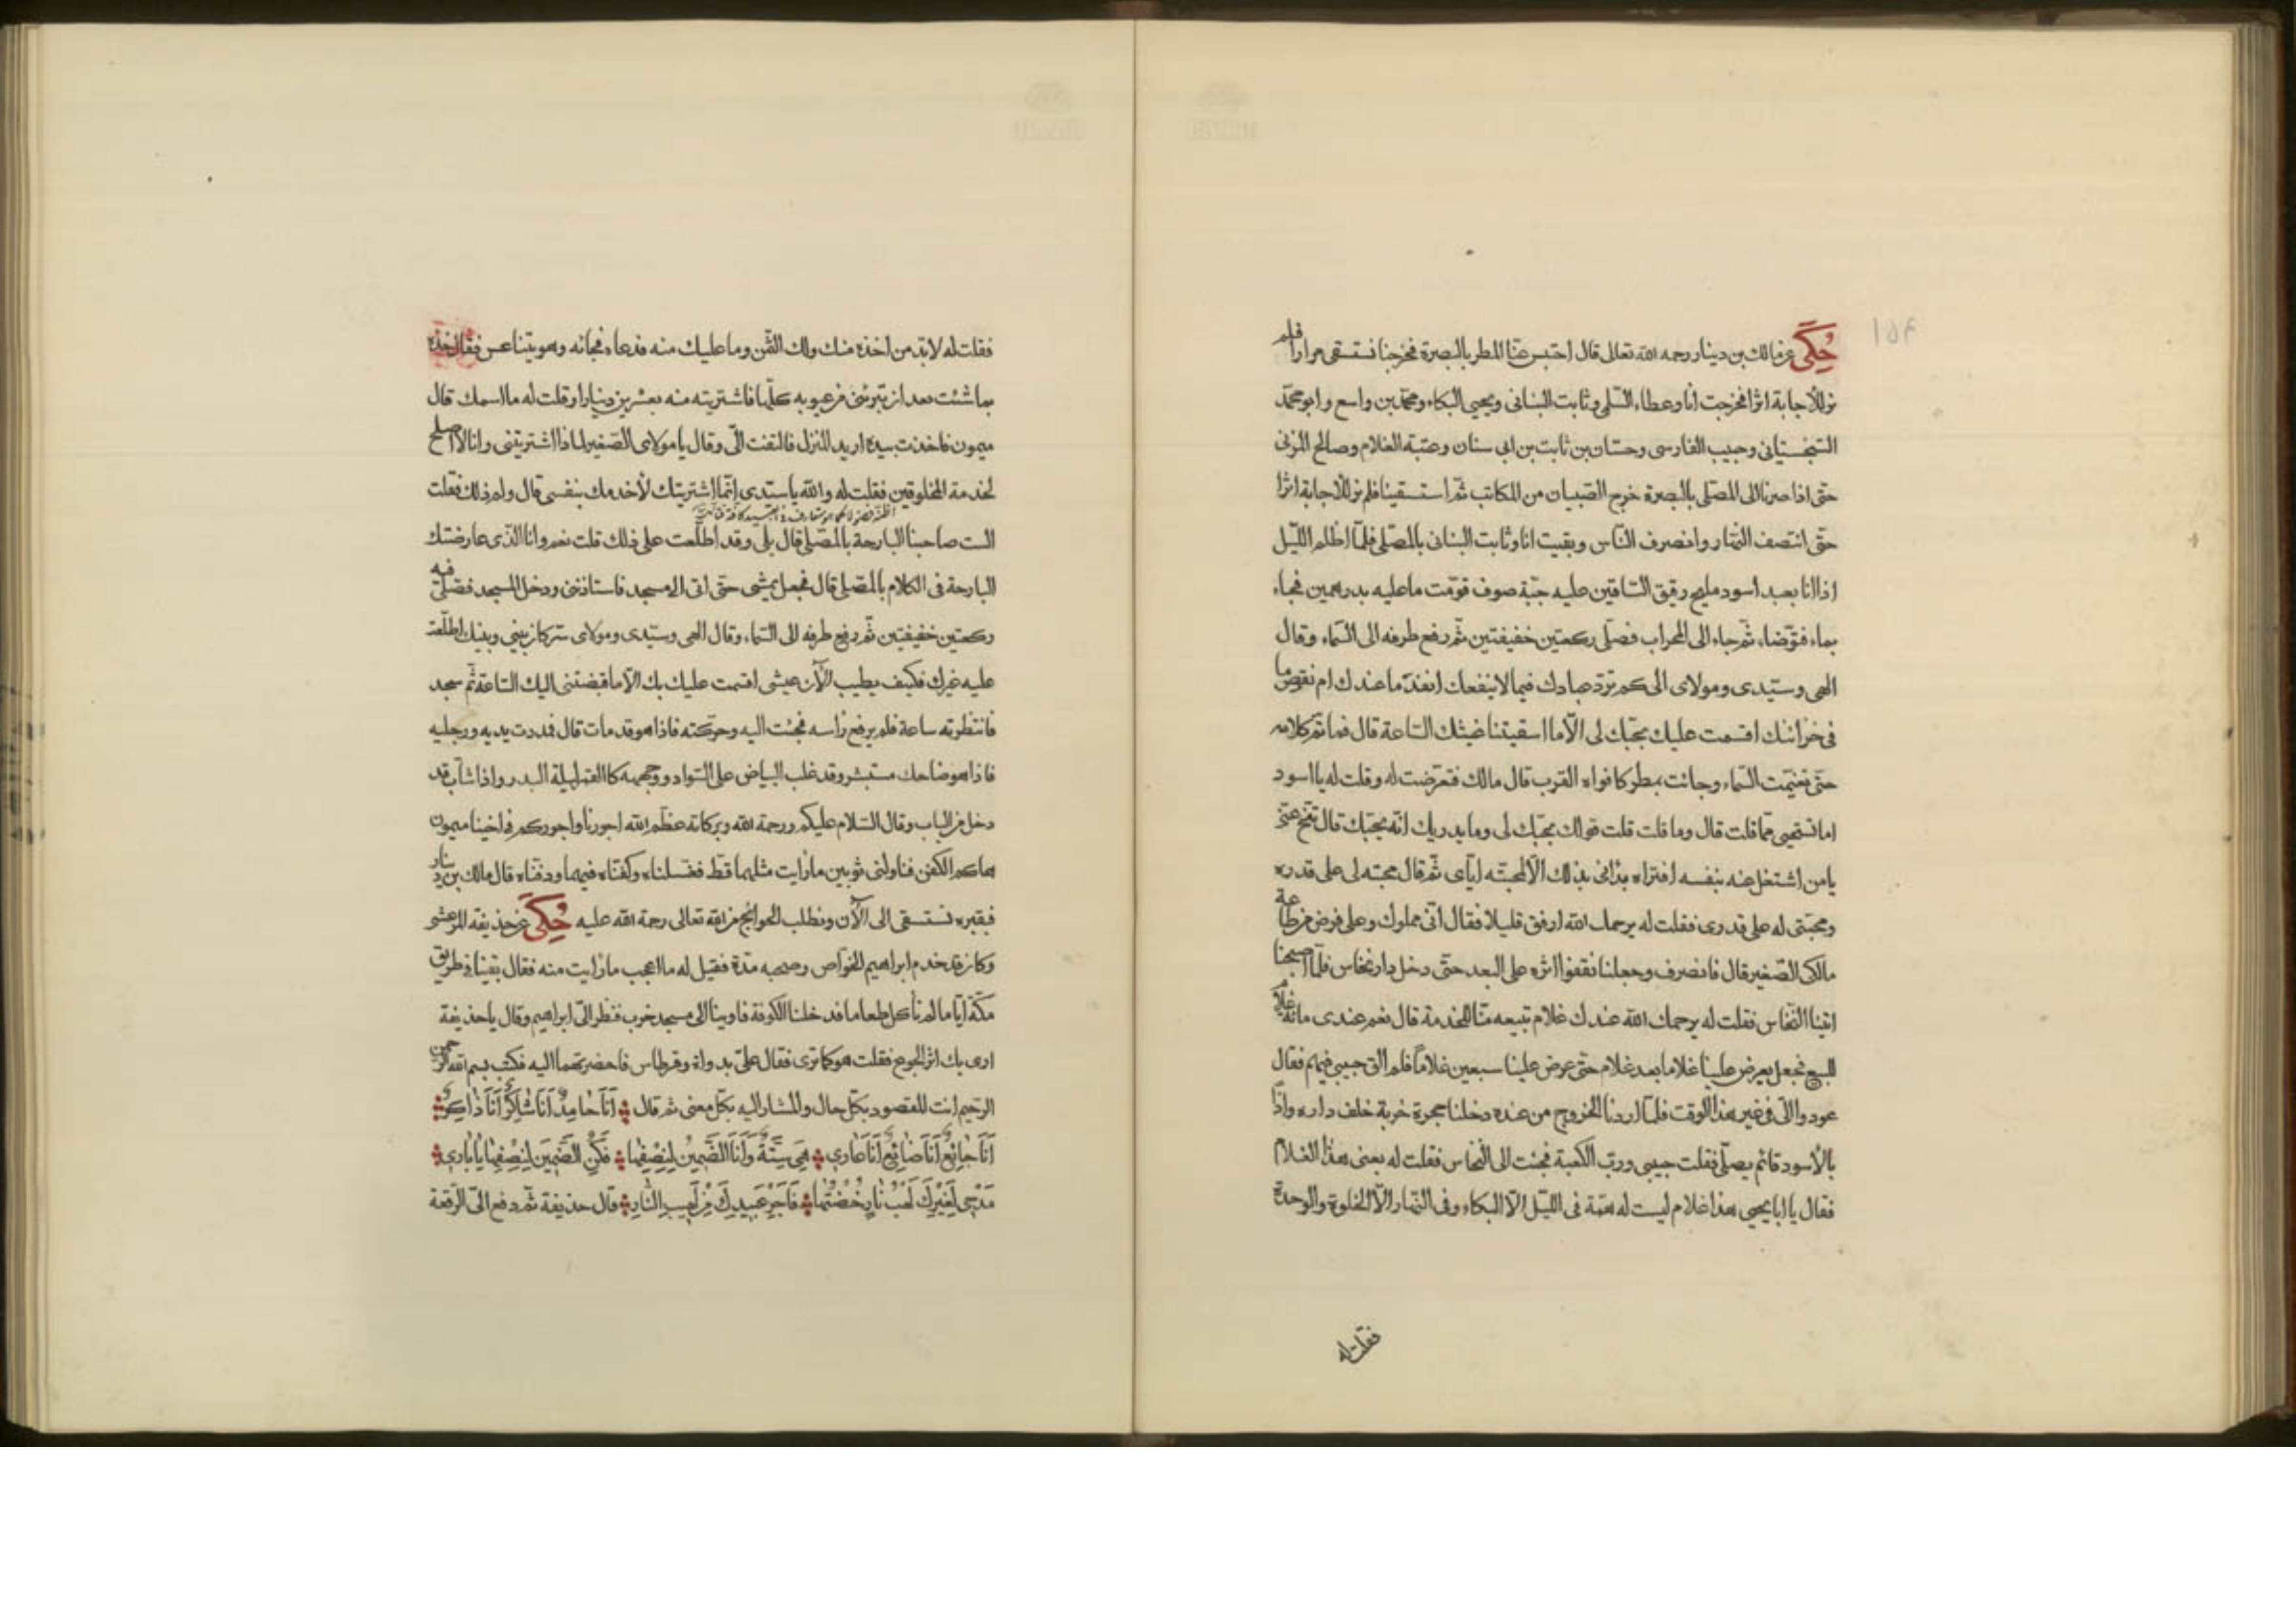 حُكِيَ عن مالك بن دينار رحمه الله تعالى قال احتبس عنّا المطر بالبصرة فخرجنا نستسقى مرارا فلم
نر للأجابة اثرا فخرجت انا وعطاء السّلمى وثابت البنانى ويحيى البكاء ومحمّد بن واسع وابو محمّد
السّجستيانى وحبيب الفارسى وحسّان بن ثابت بن ابى سنان وعتبة الغلام وصالح المزنى
حتّى اذا صرنا الى المصّلى بالبصرة خرج الصّبيان من المكاتب ثمّ استسقينا فلم نر للأجابة اثرا
حتّى انتصف النّهار وانصرف النّاس وبقيت انا وثابت البنانى بالمصّلى فلمّا اظلم اللّيل
اذا انا بعبد اسود مليح رقيق السّاقين عليه جبّة صوف قوّمت ما عليه بدرهمين فجاء
بماء فتوّضاء ثمّ جاء الى المحراب فصلّى ركعتين خفيفتين ثمّ رفع طرفه الى السّماء وقال
الهى وسيّدى ومولاى الى كم تردّ عبادك فيما لا ينفعك انفد ما عندك ام نقص ما
فى خزائنك اقسمت عليك بحبّك لى الّا ما اسقيتنا غيثك السّاعة قال فما تمّ كلامه
حتّى تغيّمت السّماء وجائت بمطر كافواه القرب قال مالك فتعرّضت له وقلت له يا اسود
اما تستحيى ممّا قلت قال وما قلت قلت قولك بحبّك لى وما يدريك انّه يحبّك قال تنحّ عنّى
يا من اشتغل عنه بنفسه افتراه بدانى بذلك الّا لمحبّته ايّاى ثمّ قال محبته لى على قدره
ومحبّتى له على قدرى فقلت له يرحمك الله ارفق قليلا فقال انّى مملوك وعلى فرض من طاعة
مالكى الصّغير قال فانصرف وجعلنا نقفوا اثره على البعد حتّى دخل دار نخاس فلمّا اصبحنا
اتينا النّخاس فقلت له يرحمك الله عندك غلام تبيعه منّا للخدمة قال نعم عندى مائة غلام
للبيع فجعل يعرض علينا غلاما بعد غلام حتّى عرض علينا سبعين غلاماً فلم الق حبيبى فيهم فقال
عودوا الىّ فى غير هذا الوقت فلمّا اردنا الخروج من عنده دخلنا حجرة خربة خلف داره واذا
بالأسود قائم يصلّى فقلت حبيبى وربّ الكعبة فجئت الى النّخاس فقلت له بعنى هذا الغلام
فقال يا ابا يحيى هذا غلام ليست له همّة فى اللّيل الّا البكاء وفى النّهار الّا الخلوة والوحدة
فقلت له
فقلت له لابّد من اخذه منك ولك الثّمن وما عليك منه فدعاه فجائه وهو يتناعس فقال خذه
بما شئت بعد ان تبرئنى من عيوبه كلّها فاشتريته منه بعشرين دينارا وقلت له ما اسمك قال
ميمون فاخذت بيده اريد المنزل فالتفت الىّ وقال يا مولاى الصّغير لماذا اشتريتنى وانا لا اصلح
لخدمة المخلوقين فقلت له والله يا سيّدى انّما اشتريتك لأخدمك بنفسى قال ولم ذلك فقلت
الست صاحبنا البارحة بالمصّلى قال بلى وقد اطلّعت على ذلك قلت نعم وانا الّذى عارضتك
البارحة فى الكلام بالمصّلى قال فجعل يمشى حتّى اتى الى مسجد فاستاذننى ودخل المسجد فصّلى فيه
ركعتين خفيفتين ثمّ رفع طرفه الى السّماء وقال الهى وسيّدى ومولاى سرّ كان بينى وبينك اطلّعت
عليه غيرك فكيف يطيب الأن عيشى اقسمت عليك بك الّا ما قبضتنى اليك السّاعة ثمّ سجد
فانتظرته ساعة فلم يرفع رأسه فجئت اليه وحرّكته فاذا هو قد مات قال فمددت يديه ورجليه
فاذا هو ضاحك مستبشر وقد غلب البياض على السّواد ووجهه كالقمر ليلة البدر واذا شابّ قد
دخل من الباب وقال السّلام عليكم ورحمة الله وبركاته عظّم الله اجورنا واجوركم فى اخينا ميمون
هاكم الكفن فناولنى ثوبين ما رأيت مثلهما قط فغسلناه وكفنّاه فيهما ودفنّاه قال مالك بن دينار
فبقبره نستسقى الى الأن ونطلب الحوائج من الله تعالى رحمة الله عليه حُكِيَ عن حذيفة المرعشى
وكان قد خدم ابراهيم الخوّاص وصحبه مدّة فقيل له ما اعجب ما رأيت منه فقال بقينا فى طريق
مكّة ايّاما لم نأكل طعاما فدخلنا الكوفة فاوينا الى مسجد خرب فنظر الىّ ابراهيم وقال يا حذيفة
ارى بك اثر الجوع فقلت هو كما ترى فقال علىّ بدواة وقرطاس فاحضرتهما اليه فكتب بسم الله الرّحمن
الرّحيم انت المقصود بكلّ حال والمشار اليه بكلّ معنى ثمّ قال أَنَا حَامِدٌ أَنَا شَاكِرٌ أَنَا ذَاكِرٌ
أَنَا جَائِعٌ أَنَا ضَائِعٌ أَنَا عَارِى هِىَ سِتَّةٌ وَأَنَا الضَّمِينُ لِنِصْفِهَا فَكُنِ الضَّمِينَ لِنِصْفِهَا يَا بَارِى
مَدْحِى لِغَيْرِكَ لَهَبُ نَارٍ خُضْتُهَا فَأَجِرْ عُبَيْدَكَ مِنْ لَهِيبِ النَّارِ قال حذيفة ثمّ دفع الىّ الرّقعة